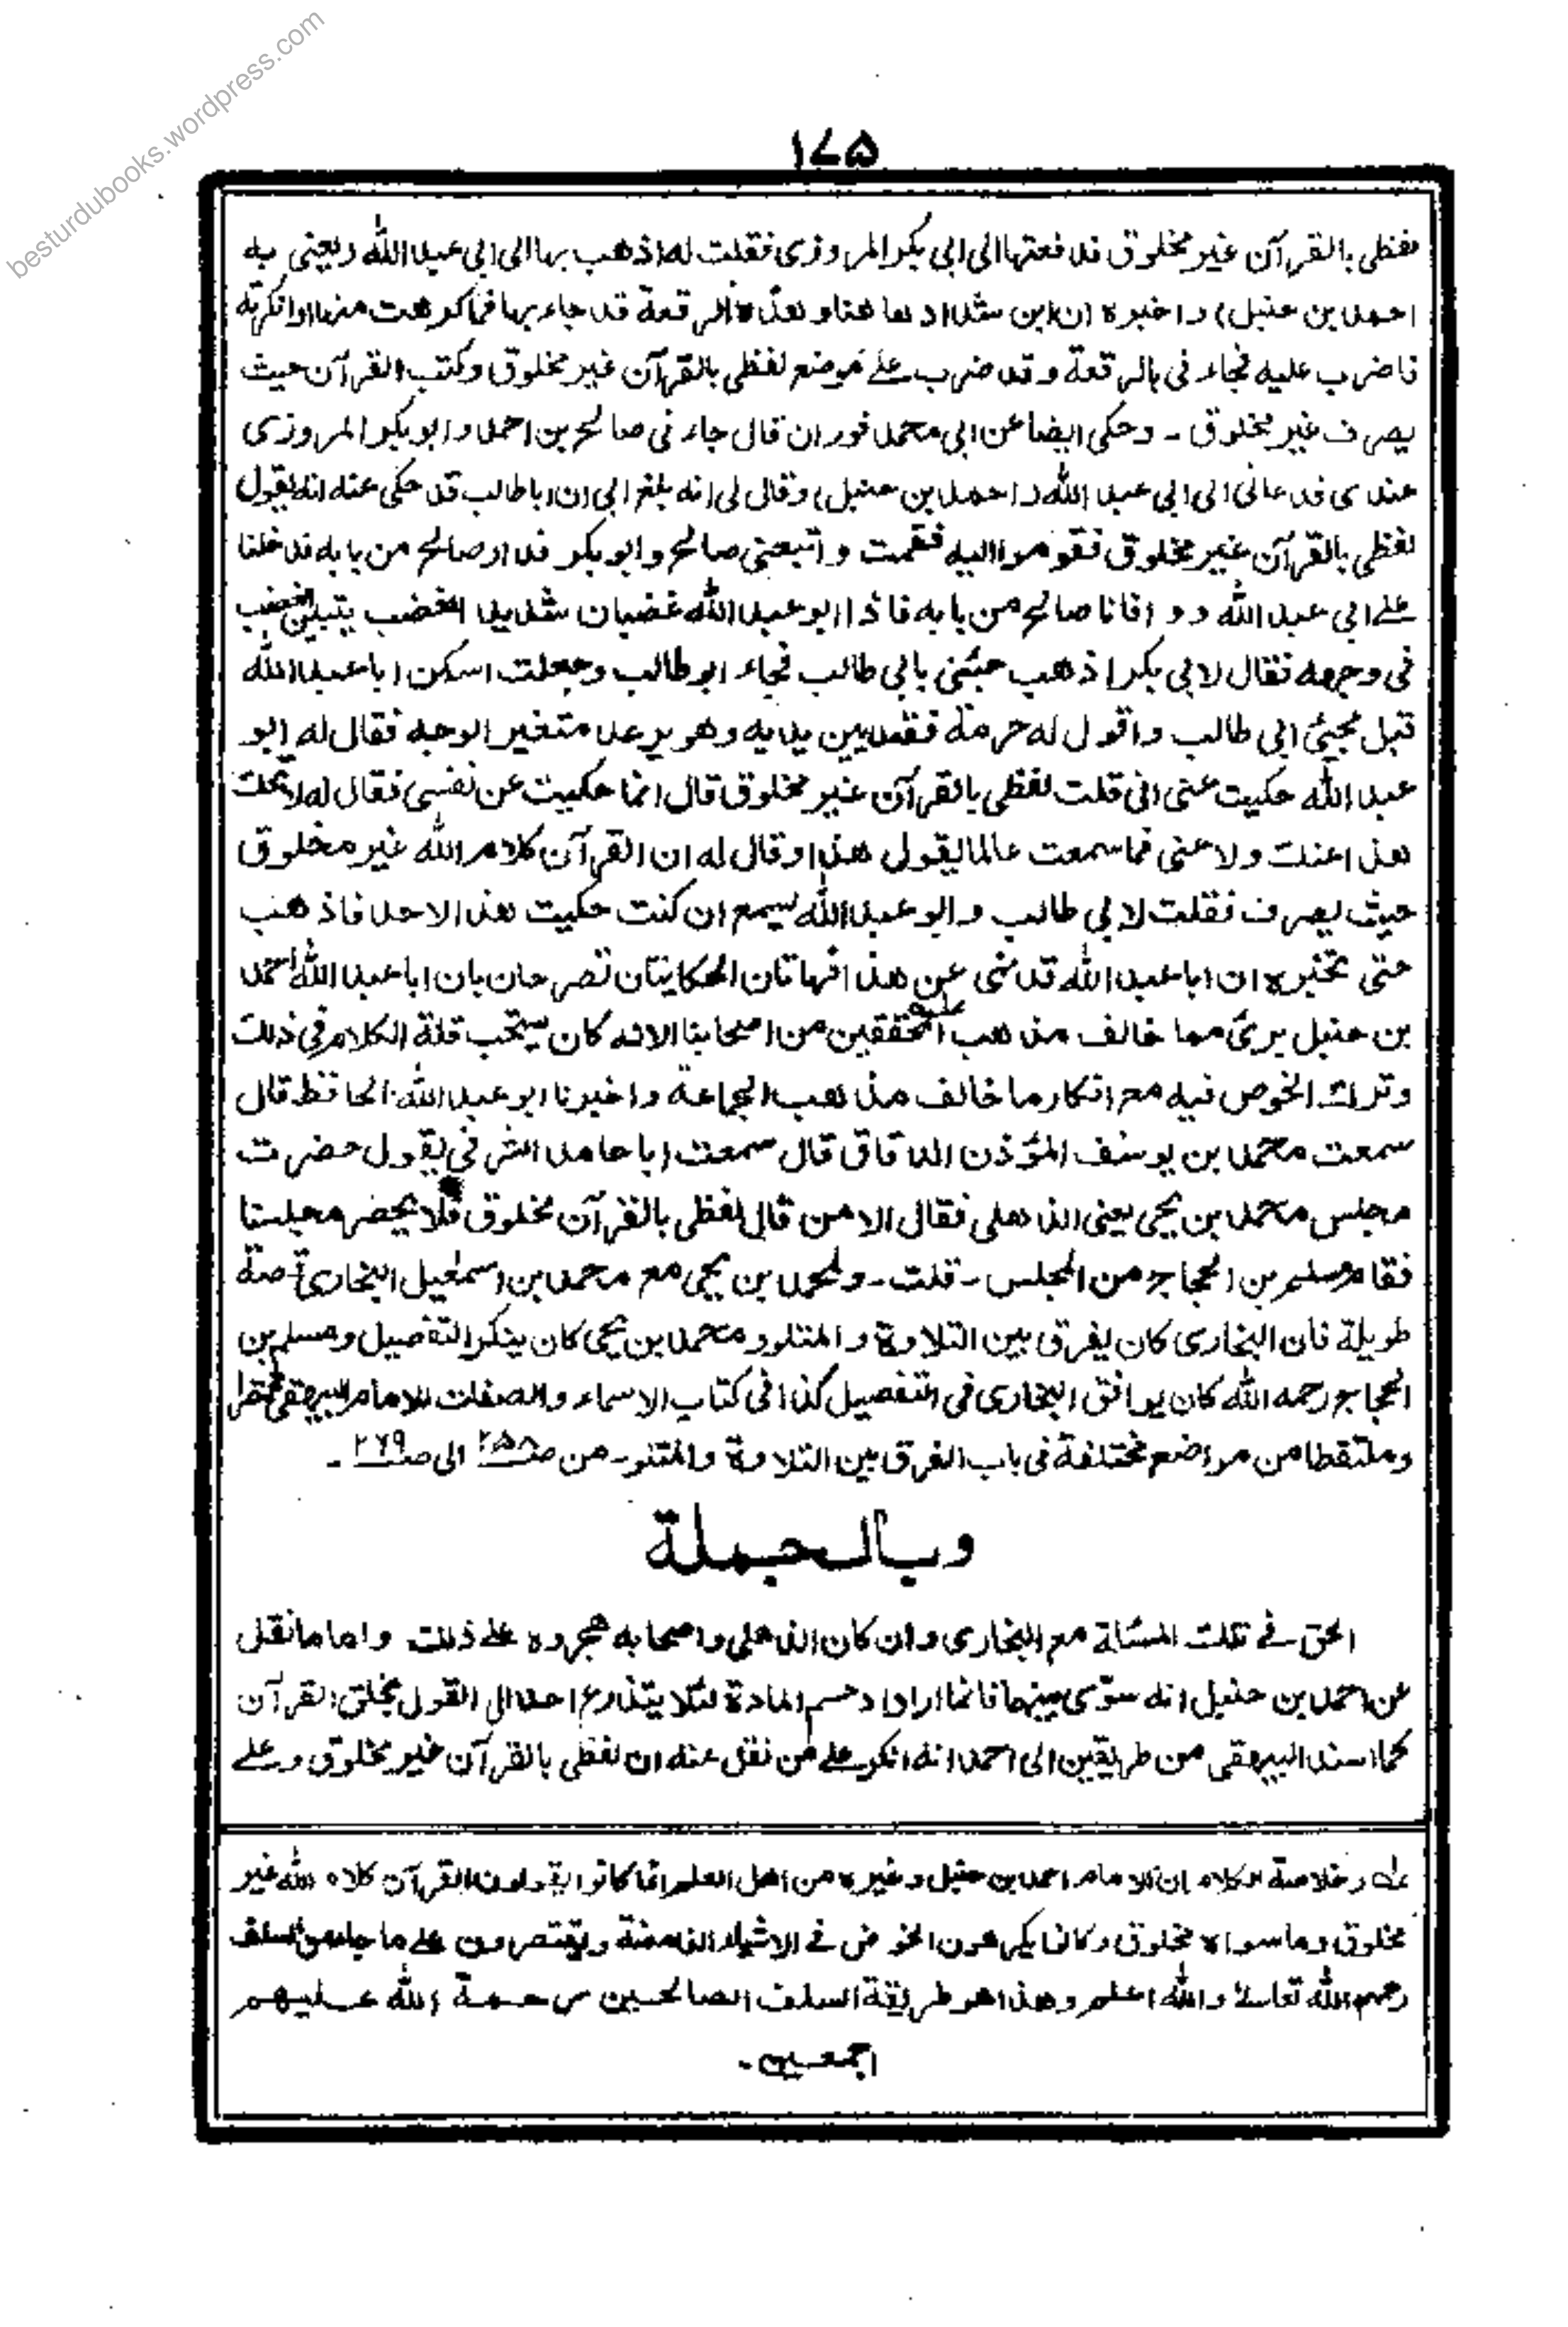 besturdubooks.wordpress.com
۱۷۵
لفظی بالقرآن غیر مخلوق فدفعتها الی ابی بکر المروزی فقلت له اذهب بها الی ابی عبد الله (یعنی به
احمد بن حنبل) واخبره ان ابن شداد هاهنا وهذه الرقعة قد جاء بها فما کرهت منها او انکرته
فاضرب علیه فجاءنی بالرقعة وقد ضرب علی موضع لفظی بالقرآن غیر مخلوق وکتب القرآن حیث
یصرف غیر مخلوق - وحکی ایضا عن ابی محمد فوران قال جاءنی صالح بن احمد وابو بکر المروزی
عندی فدعانی الی ابی عبد الله (احمد بن حنبل) وقال لی انه بلغ ابی ان ابا طالب قد حکی عنه انه یقول
لفظی بالقرآن غیر مخلوق فقوموا الیه فقمت واتبعنی صالح وابو بکر فدار صالح من بابه فدخلنا
علی ابی عبد الله ووافانا صالح من بابه فاذا ابو عبد الله غضبان شدید الغضب یتبین الغضب
فی وجهه فقال لابی بکر اذهب جئنی بابی طالب فجاء ابو طالب وجعلت اسکن ابا عبد الله
قبل مجیئ ابی طالب واقول له حرمة فقعد بین یدیه وهو یرعد متغیر الوجه فقال له ابو
عبد الله حکیت عنی انی قلت لفظی بالقرآن غیر مخلوق قال انما حکیت عن نفسی فقال له لا تحک
هذا عنک ولا عنی فما سمعت عالما یقول هذا وقال له ان القرآن کلام الله غیر مخلوق
حیث یصرف فقلت لابی طالب وابو عبد الله یسمع ان کنت حکیت هذا لاحد فاذهب
حتی تخبره ان ابا عبد الله قد نهی عن هذا فهاتان الحکایتان تصرحان بان ابا عبد الله احمد
بن حنبل بریٔ مما خالف مذهب المحققین من اصحابنا الا انه کان یستحب قلة الکلام فی ذلک
وترک الخوض فیه مع انکار ما خالف مذهب الجماعة واخبرنا ابو عبد الله الحافظ قال
سمعت محمد بن یوسف المؤذن الدقاق قال سمعت ابا حامد الشرقی یقول حضرت
مجلس محمد بن یحی یعنی الذهلی فقال الا من قال لفظی بالقرآن مخلوق فلا یحضر مجلسنا
فقام مسلم بن الحجاج من المجلس - قلت - ولمحمد بن یحی مع محمد بن اسمعیل البخاری قصة
طویلة فان البخاری کان یفرق بین التلاوة والمتلو ومحمد بن یحی کان ینکر التفصیل ومسلم بن
الحجاج رحمه الله کان یوافق البخاری فی التفصیل کذا فی کتاب الاسماء والصفات للامام البیهقی
وملتقطا من مواضع مختلفة فی باب الفرق بین التلاوة والمتلو - من ص الی ص -
وبالجملة
الحق فی تلک المسئلة مع البخاری وان کان الذهلی واصحابه هجروه علی ذلک واما ما نقل
عن احمد بن حنبل انه سوّی بینهما فانما اراد حسم المادة لئلا یتذرع احد الی القول بخلق القرآن
کما اسند البیهقی من طریقین الی احمد انه انکر علی من نقل عنه ان لفظی بالقرآن غیر مخلوق وعلی
وخلاصة الکلام ان الامام احمد بن حنبل وغیره من اهل العلم انما کانوا یقولون القرآن کلام الله غیر
مخلوق وما سواه مخلوق وکانوا یکرهون الخوض فی الاشیاء الغامضة ویقتصرون علی ما جاء عن السلف
رحمهم الله تعالی والله اعلم وهذا هو طریقة السلف الصالحین رحمة الله علیهم
اجمعین -